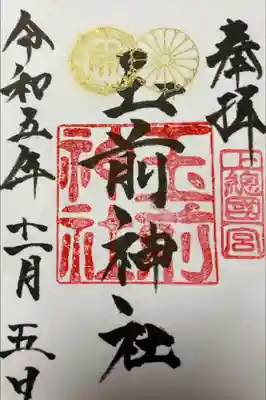 奉拝
上總國一宮
玉前神社
玉前
神社
令和五年十一月五日